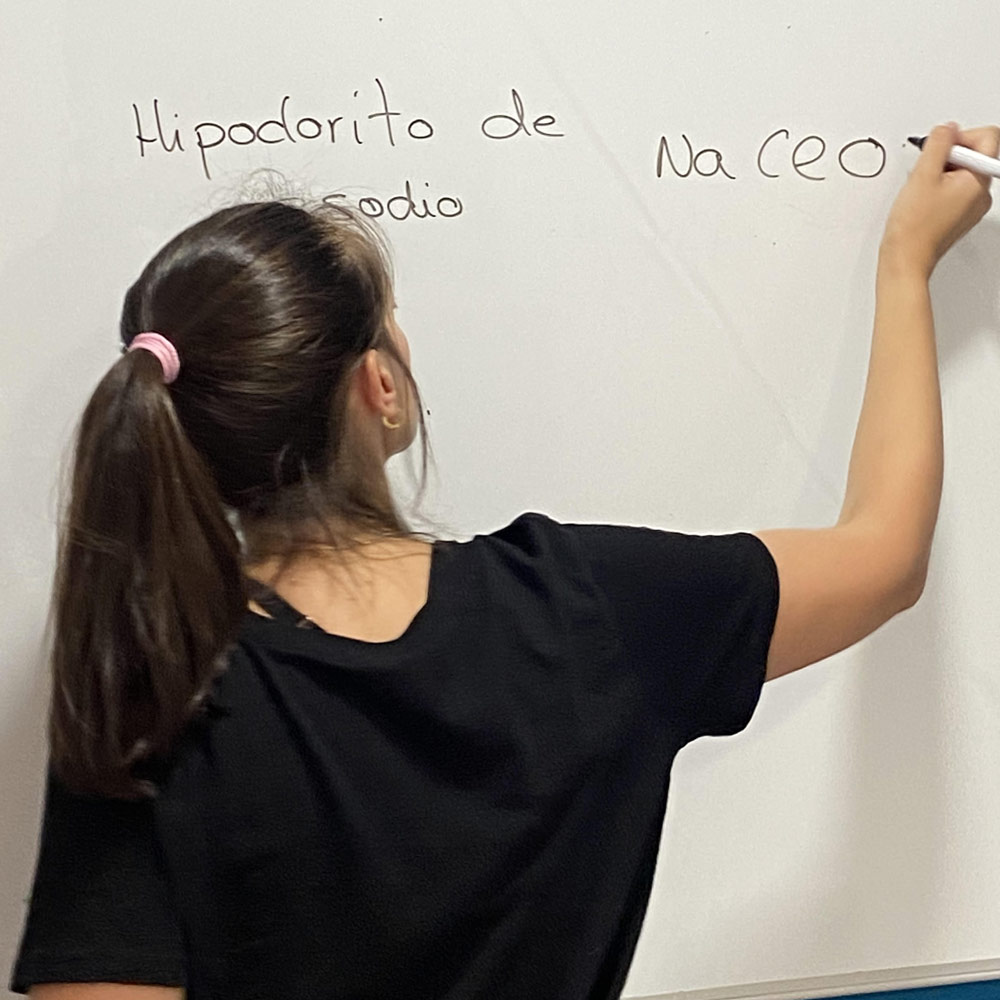 Hipoclorito de
sodio
NaClO